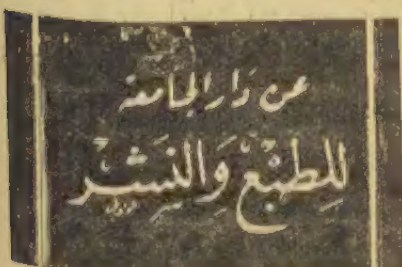 عن دار الجامعة
للطبْع وَالنشْر